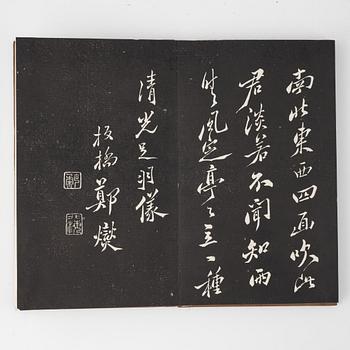 南北東西四面吹此
君淡若不聞知雨
晴風定亭〻立一種
清光是羽儀
板橋鄭燮